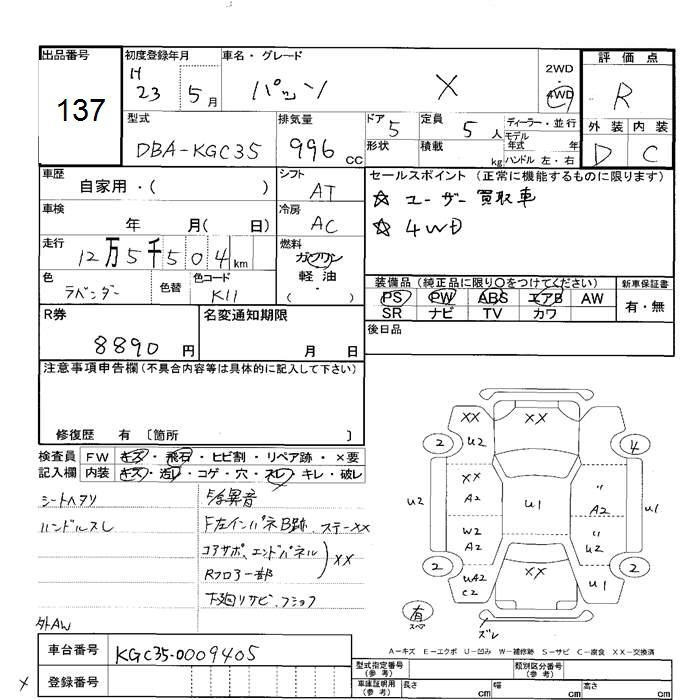 出品番号 137
初度登録年月 H 23 5月
車名・グレード パッソ X
2WD・4WD
評価点 R
外装 D 内装 C
型式 DBA-KGC35
排気量 996 cc
ドア 5 形状
定員 5人 積載 kg
ディーラー・並行
モデル年式 年式
ハンドル 左・右
車歴 自家用・( )
シフト AT
セールスポイント (正常に機能するものに限ります)
☆ ユーザー買取車
☆ 4WD
車検 年 月( 日)
冷房 AC
走行 12万5千504km
燃料 ガソリン 軽油 ・( )
色 ラベンダー 色替 色コード K11
装備品 (純正品に限り○をつけてください) 新車保証書
PS PW ABS エアB AW 有・無
SR ナビ TV カワ
R券 8890円
名変通知期限 月 日
後日品
注意事項申告欄(不具合内容等は具体的に記入して下さい)
修復歴 有 〔箇所 〕
検査員 FW キズ・飛石・ヒビ割・リペア跡・×要
記入欄 内装 キズ・汚レ・コゲ・穴・スレ・キレ・破レ
シートヘタリ
ハンドルスレ
異音
F左インパネB跡、ステーXX
コアサポ、エンドパネル
XX
Rフロアー部
下廻リサビ、
外AW
XX XX
U2
2 4
XX
A2
U2 U1 〃 A2 U1
W2
A2
〃
U2
2 2
UA2
C2
XX U1
有
スペア
ズレ
A-キズ E-エクボ U-凹み W-補修跡 S-サビ C-腐食 XX-交換済
車台番号 KGC35-0009405
登録番号
型式指定番号(参考) 類別区分番号(参考)
車庫証明用(参考) 長さ cm 幅 cm 高さ cm